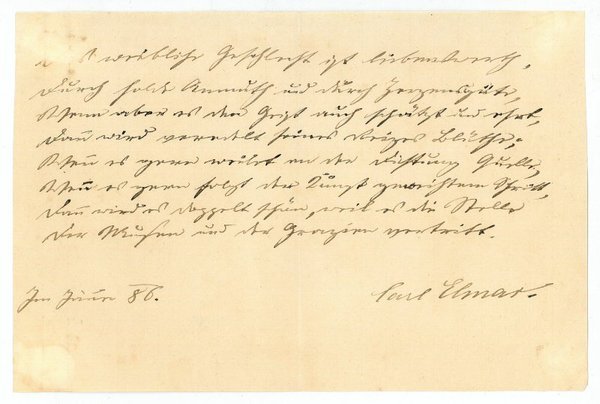 s weibliche Geschlecht ist liebenswerth,
Durch holde Anmuth und durch Herzensgüte,
Wenn aber es den Geist auch schätzt und ehrt,
Dann wird veredelt seines Reizes Blüthe;
Wenn es gern weilet an der Dichtung Quelle,
Wenn es gern folgt der Kunst geweihtem Schritt,
Dann wird es doppelt schön, weil es die Stelle
Der Musen und der Grazien vertritt.
Im 86.
Carl Elmar.